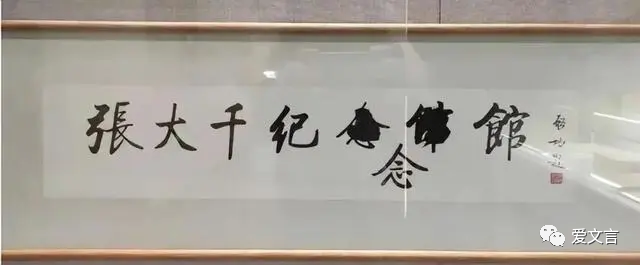 張大千纪念館
念
啟功題
爱文言